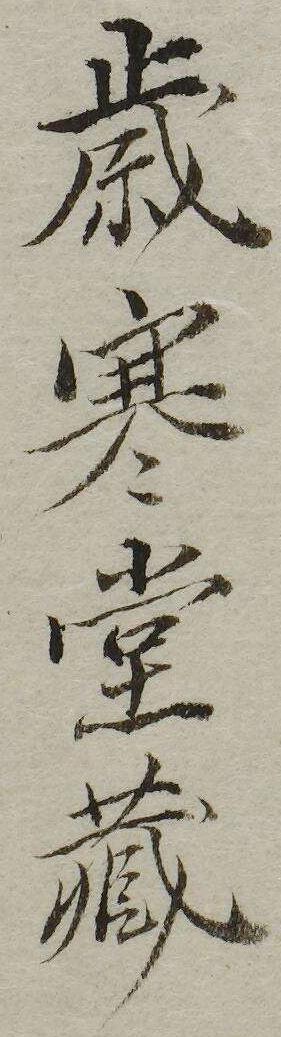 歳寒堂藏